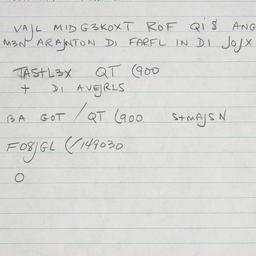 VAJL MIDG3KOXT ROF QI$ ANG
M3N ARAJNTON DI FARFL IN DI JOJX
TASTL3X QT (900
+ DI AVEJRLS
BA GOT / QT (900 S+MAJSN
FO8JGL (/149030
O